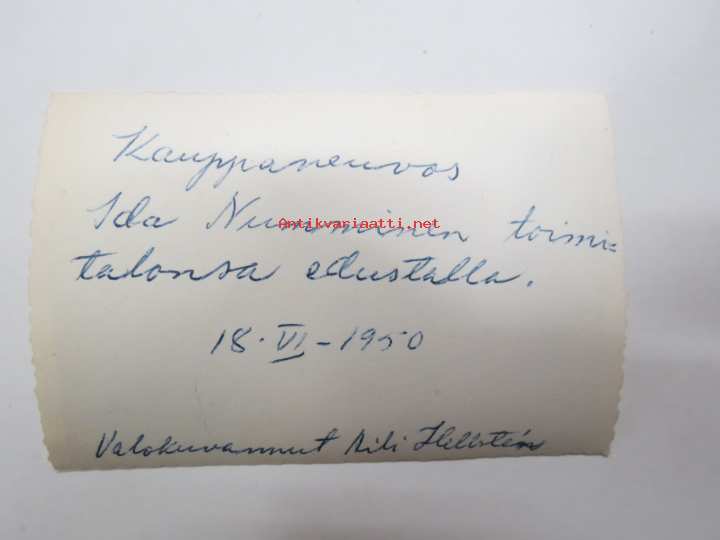 Kauppaneuvos
Ida Numminen toimi=
talonsa edustalla.
18. VI - 1950
Valokuvannut Aili Hellstén
Antikvariaatti.net